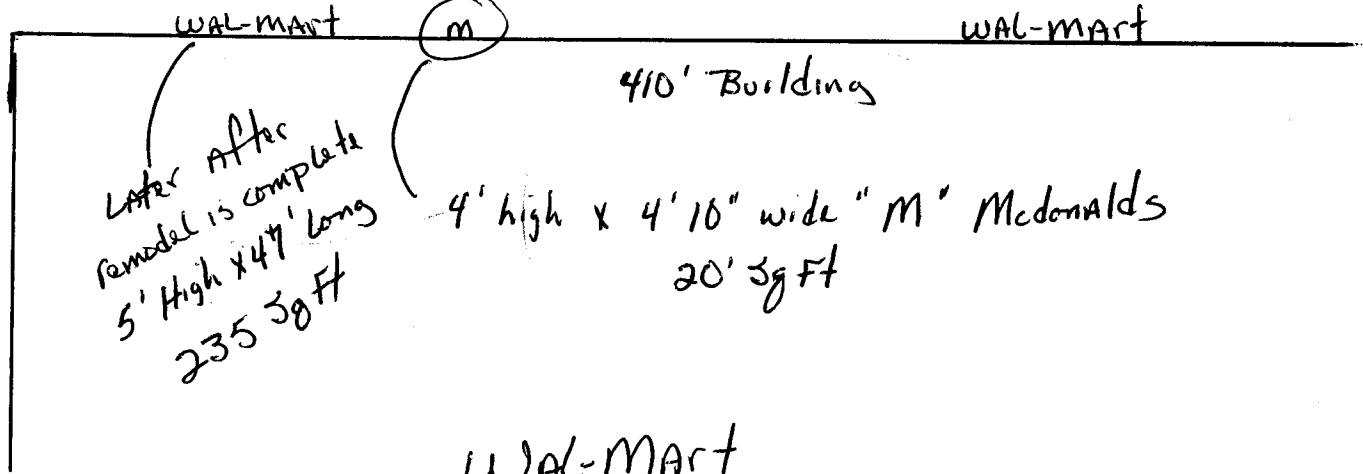 WAL-MART
M
WAL-MART
410' Building
LATER AFTER
remodel is complete
5' High x 47' Long
235 Sq Ft
4' high x 4'10" wide "M" McdonAlds
20' Sq Ft
WAl-MArt